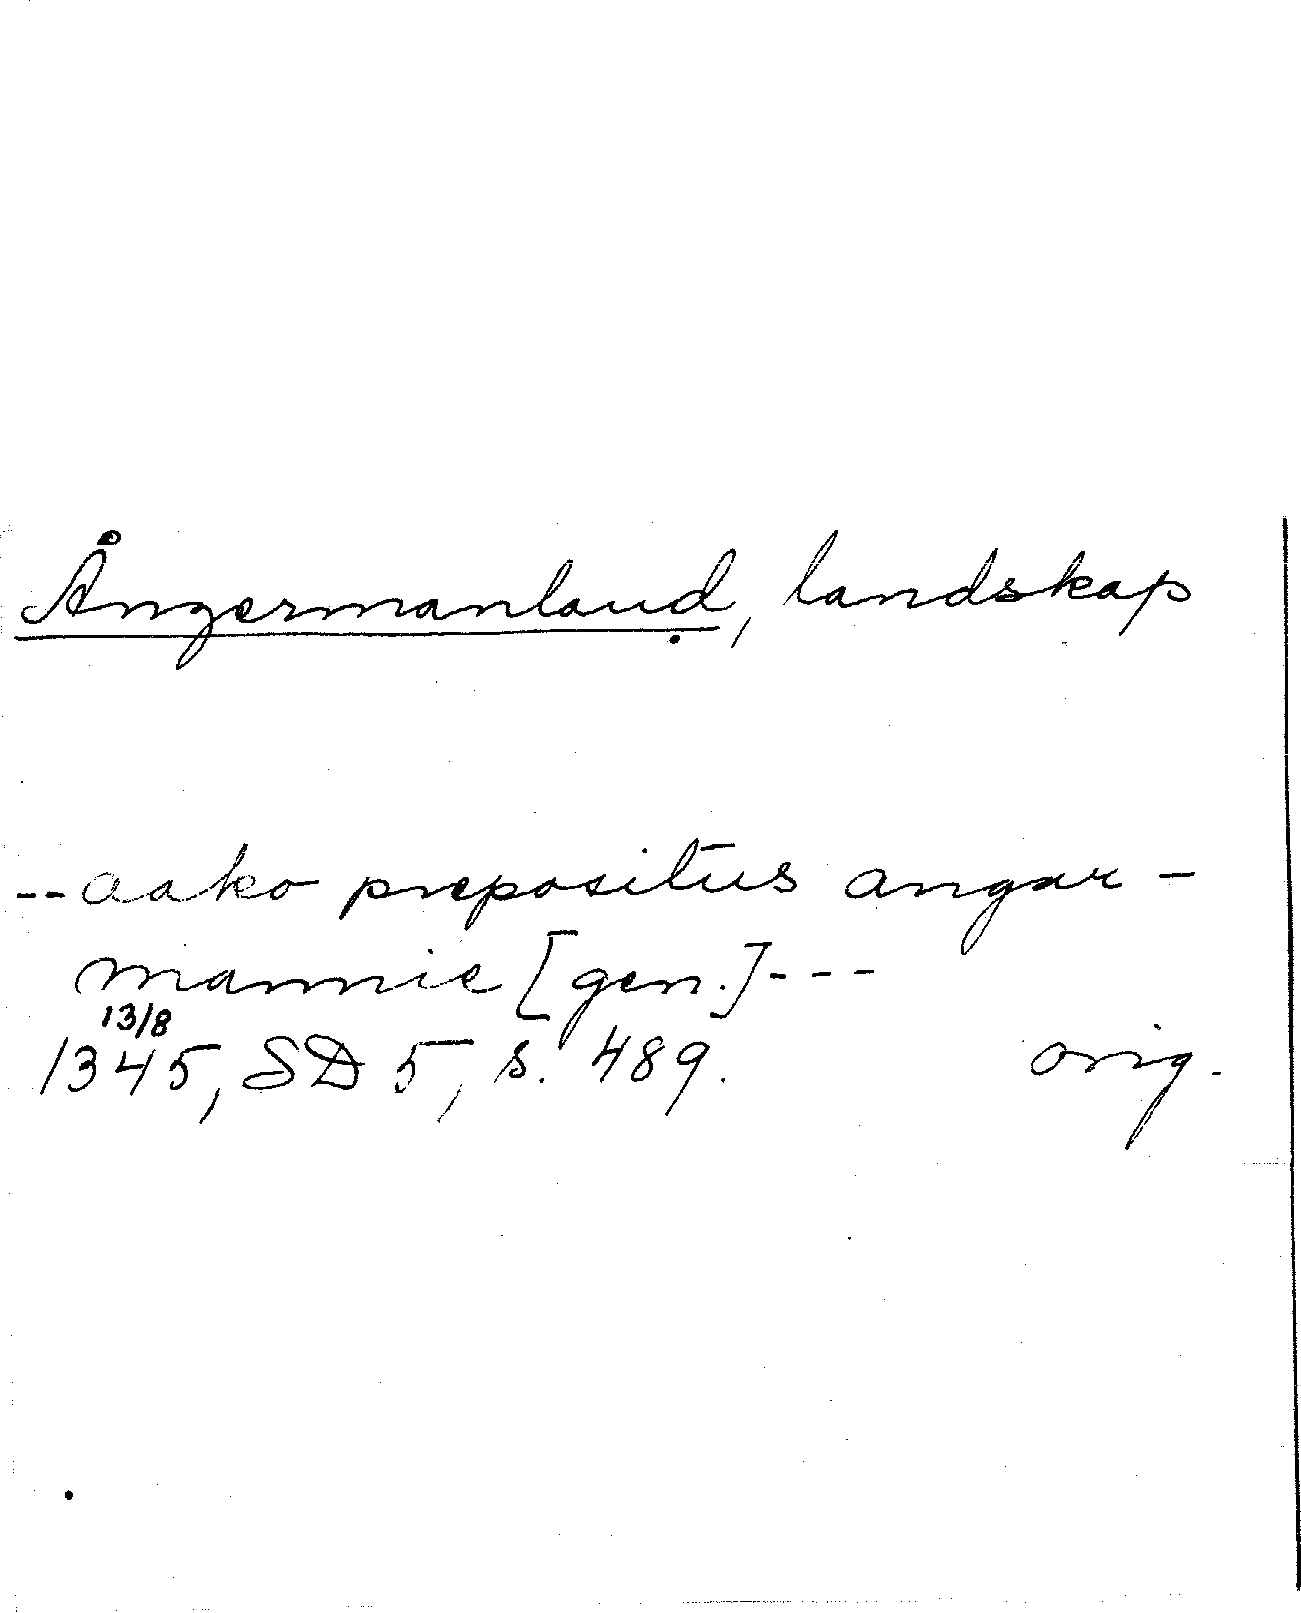 Ångermanland, landskap
-- aako prepositus angar-
mannie [gen.] ---
13/8
1345, SD 5, s. 489. orig.